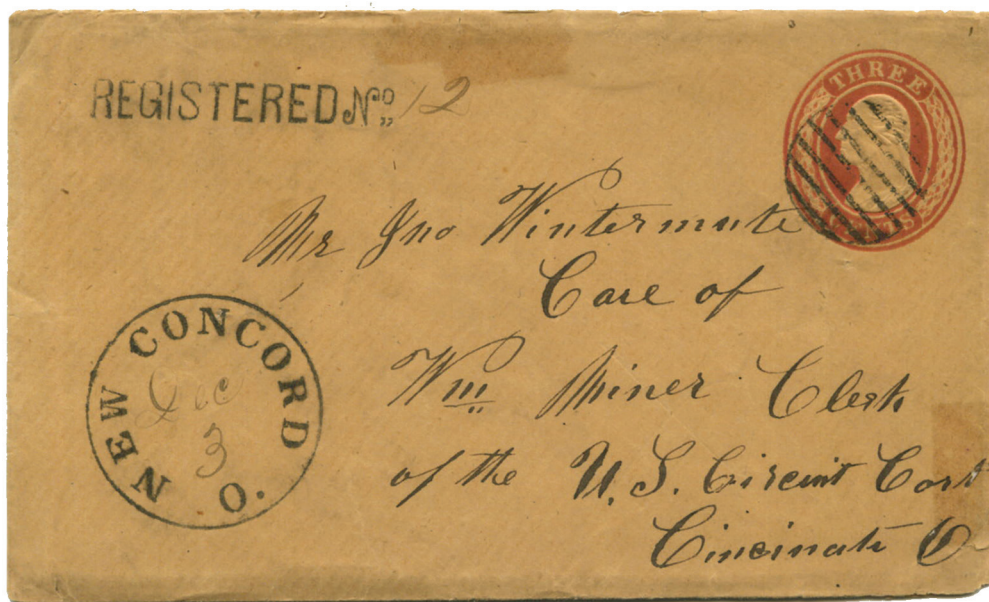 REGISTERED No. 12
THREE CENTS
Mr Jno Wintermute
Care of
Wm Miner Clerk
of the U.S. Circuit Cort
Cincinati O
NEW CONCORD O.
Dec
3